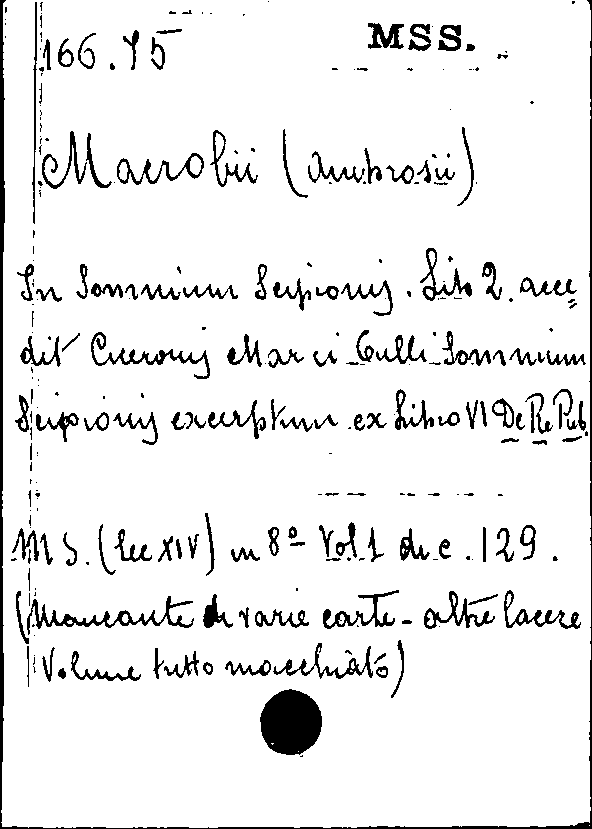 166.Y5
MSS.
Macrobii (Ambrosii)
In Somnium Scipionis. Lib 2. acce=
dit Ciceronis Marci Tulli Somnium
Scipionis excerptum ex Libro VI De Re Pub.
MS. (Sec XIV) in 8º Vol 1 di c. 129.
(Mancante di varie carte - altre lacere
Volume tutto macchiato)